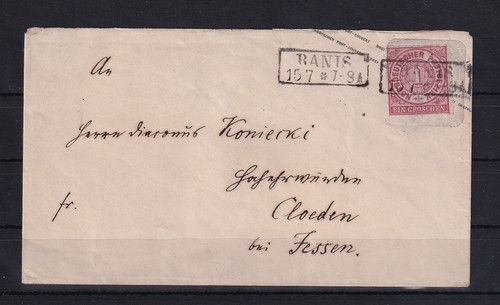 RANIS
15 7 ✲ 7-8 A
NORDDEUTSCHER POSTBEZIRK
1
EIN GROSCHEN
RANIS
An
Herrn Diaconus Koniecki
Hochehrwürden
fr. Cloeden
bei Jessen.